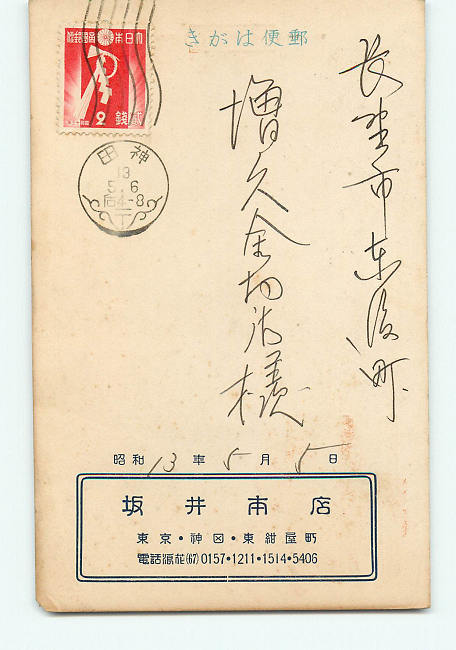 郵便はがき
大日本帝國郵便
2 貳錢
神田
13
5.6
后4-8
長野市東後町
増久金物店様
昭和13年5月5日
坂井商店
東京・神田・東紺屋町
電話浪花(67)0157・1211・1514・5406